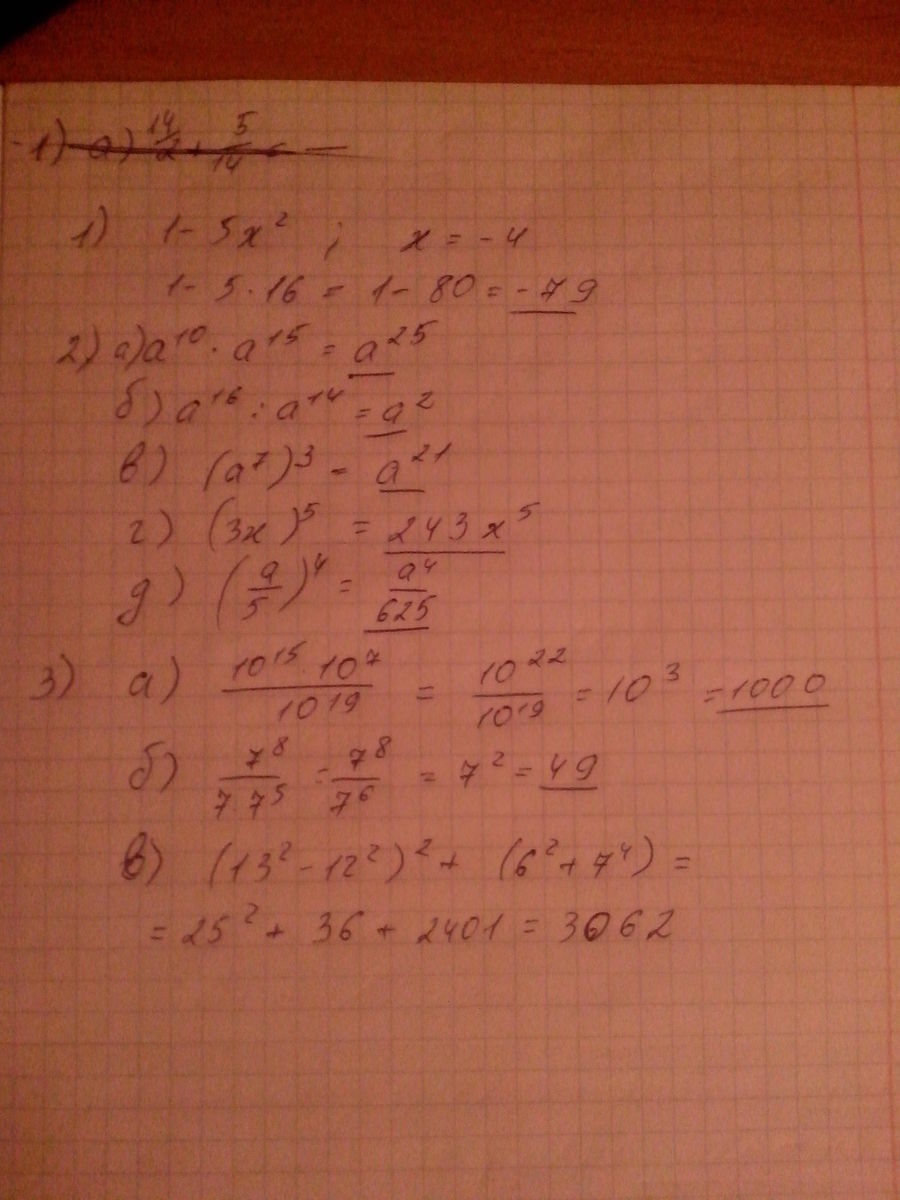 1) а) 14/2 + 5/14 =
1) 1 - 5x² ; x = -4
1 - 5 · 16 = 1 - 80 = -79
2) а) a¹⁰ · a¹⁵ = a²⁵
б) a¹⁶ : a¹⁴ = a²
в) (a⁷)³ = a²¹
г) (3x)⁵ = 243x⁵
д) (a/5)⁴ = a⁴/625
3) а) 10¹⁵ · 10⁷/10¹⁹ = 10²²/10¹⁹ = 10³ = 1000
б) 7⁸/7 · 7⁵ = 7⁸/7⁶ = 7² = 49
в) (13² - 12²)² + (6² + 7⁴) =
= 25² + 36 + 2401 = 3062